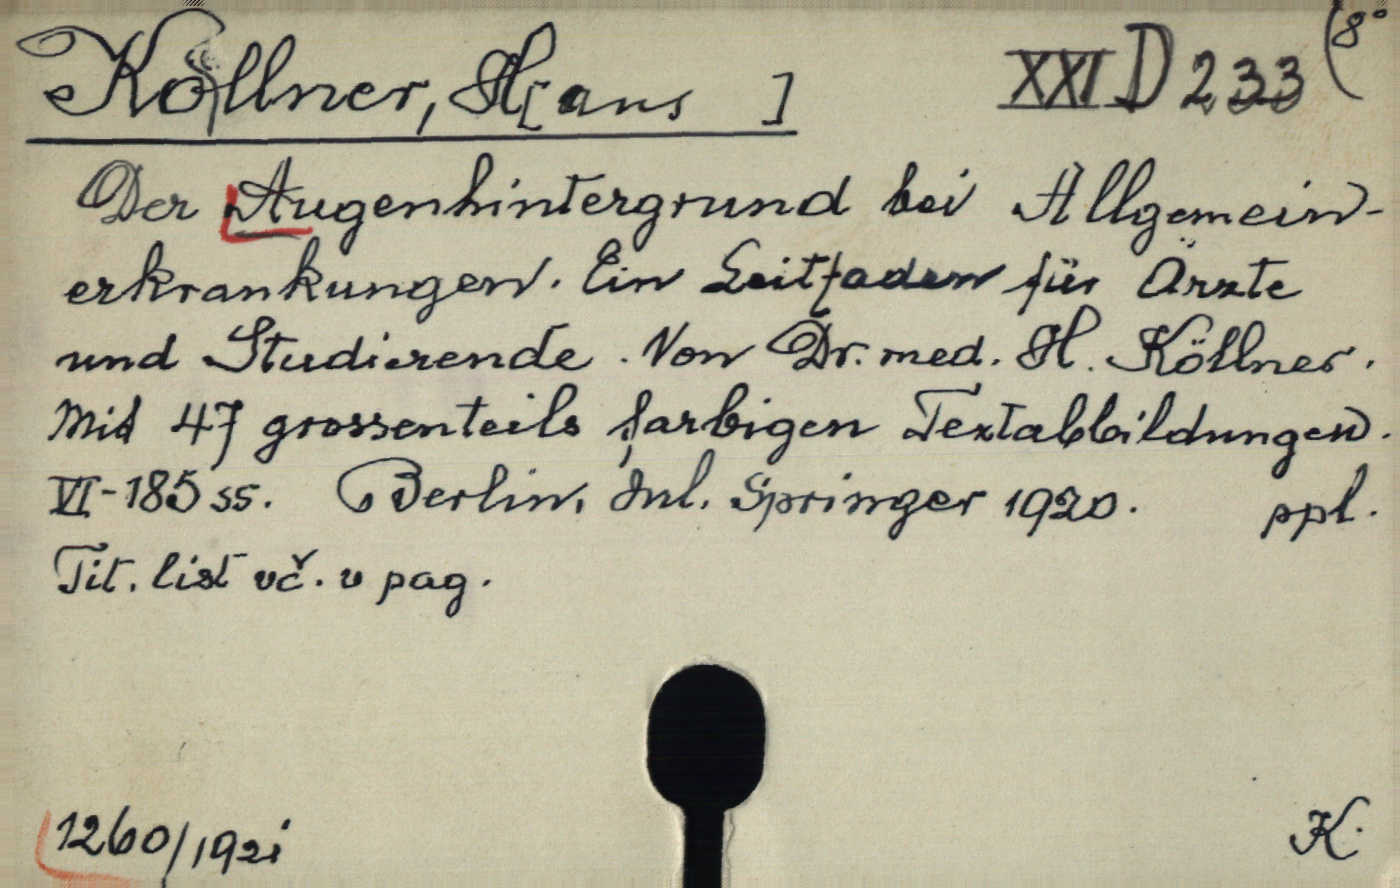 Köllner, H[ans ] XXI D 233 (8°
Der Augenhintergrund bei Allgemein-
erkrankungen. Ein Leitfaden für Ärzte
und Studierende. Von Dr. med. H. Köllner.
Mit 47 grossenteils farbigen Textabbildungen.
VI-185 ss. Berlin, Jul. Springer 1920. ppl.
Tit. list vč. v pag.
1260/1921 K.